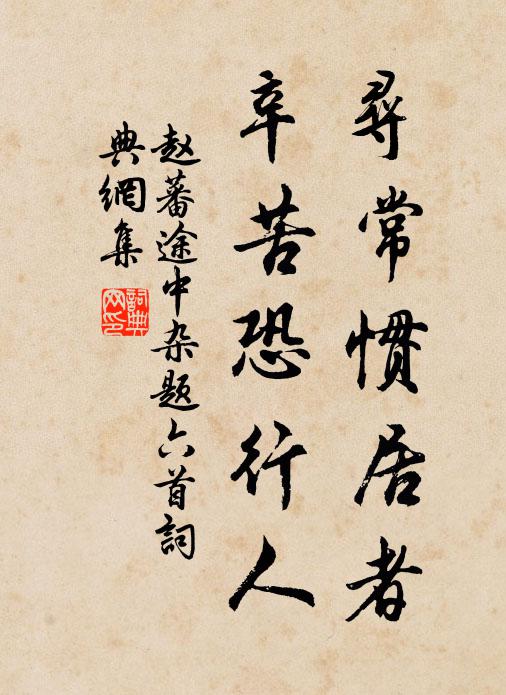 尋常慣居者
辛苦恐行人
赵蕃途中杂题六首詞
典網集
詞典网印